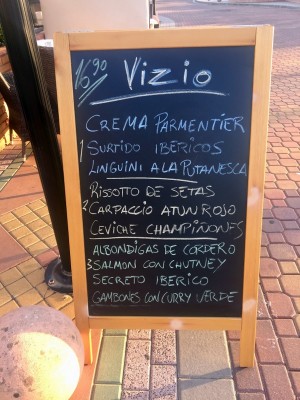 16,90
Vizio
CREMA PARMENTIER
1 SURTIDO IBERICOS
LINGUINI A LA PUTANESCA
RISSOTTO DE SETAS
2 CARPACCIO ATUN ROJO
CEVICHE CHAMPIÑONES
ALBONDIGAS DE CORDERO
3 SALMON CON CHUTNEY
SECRETO IBERICO
GAMBONES CON CURRY VERDE